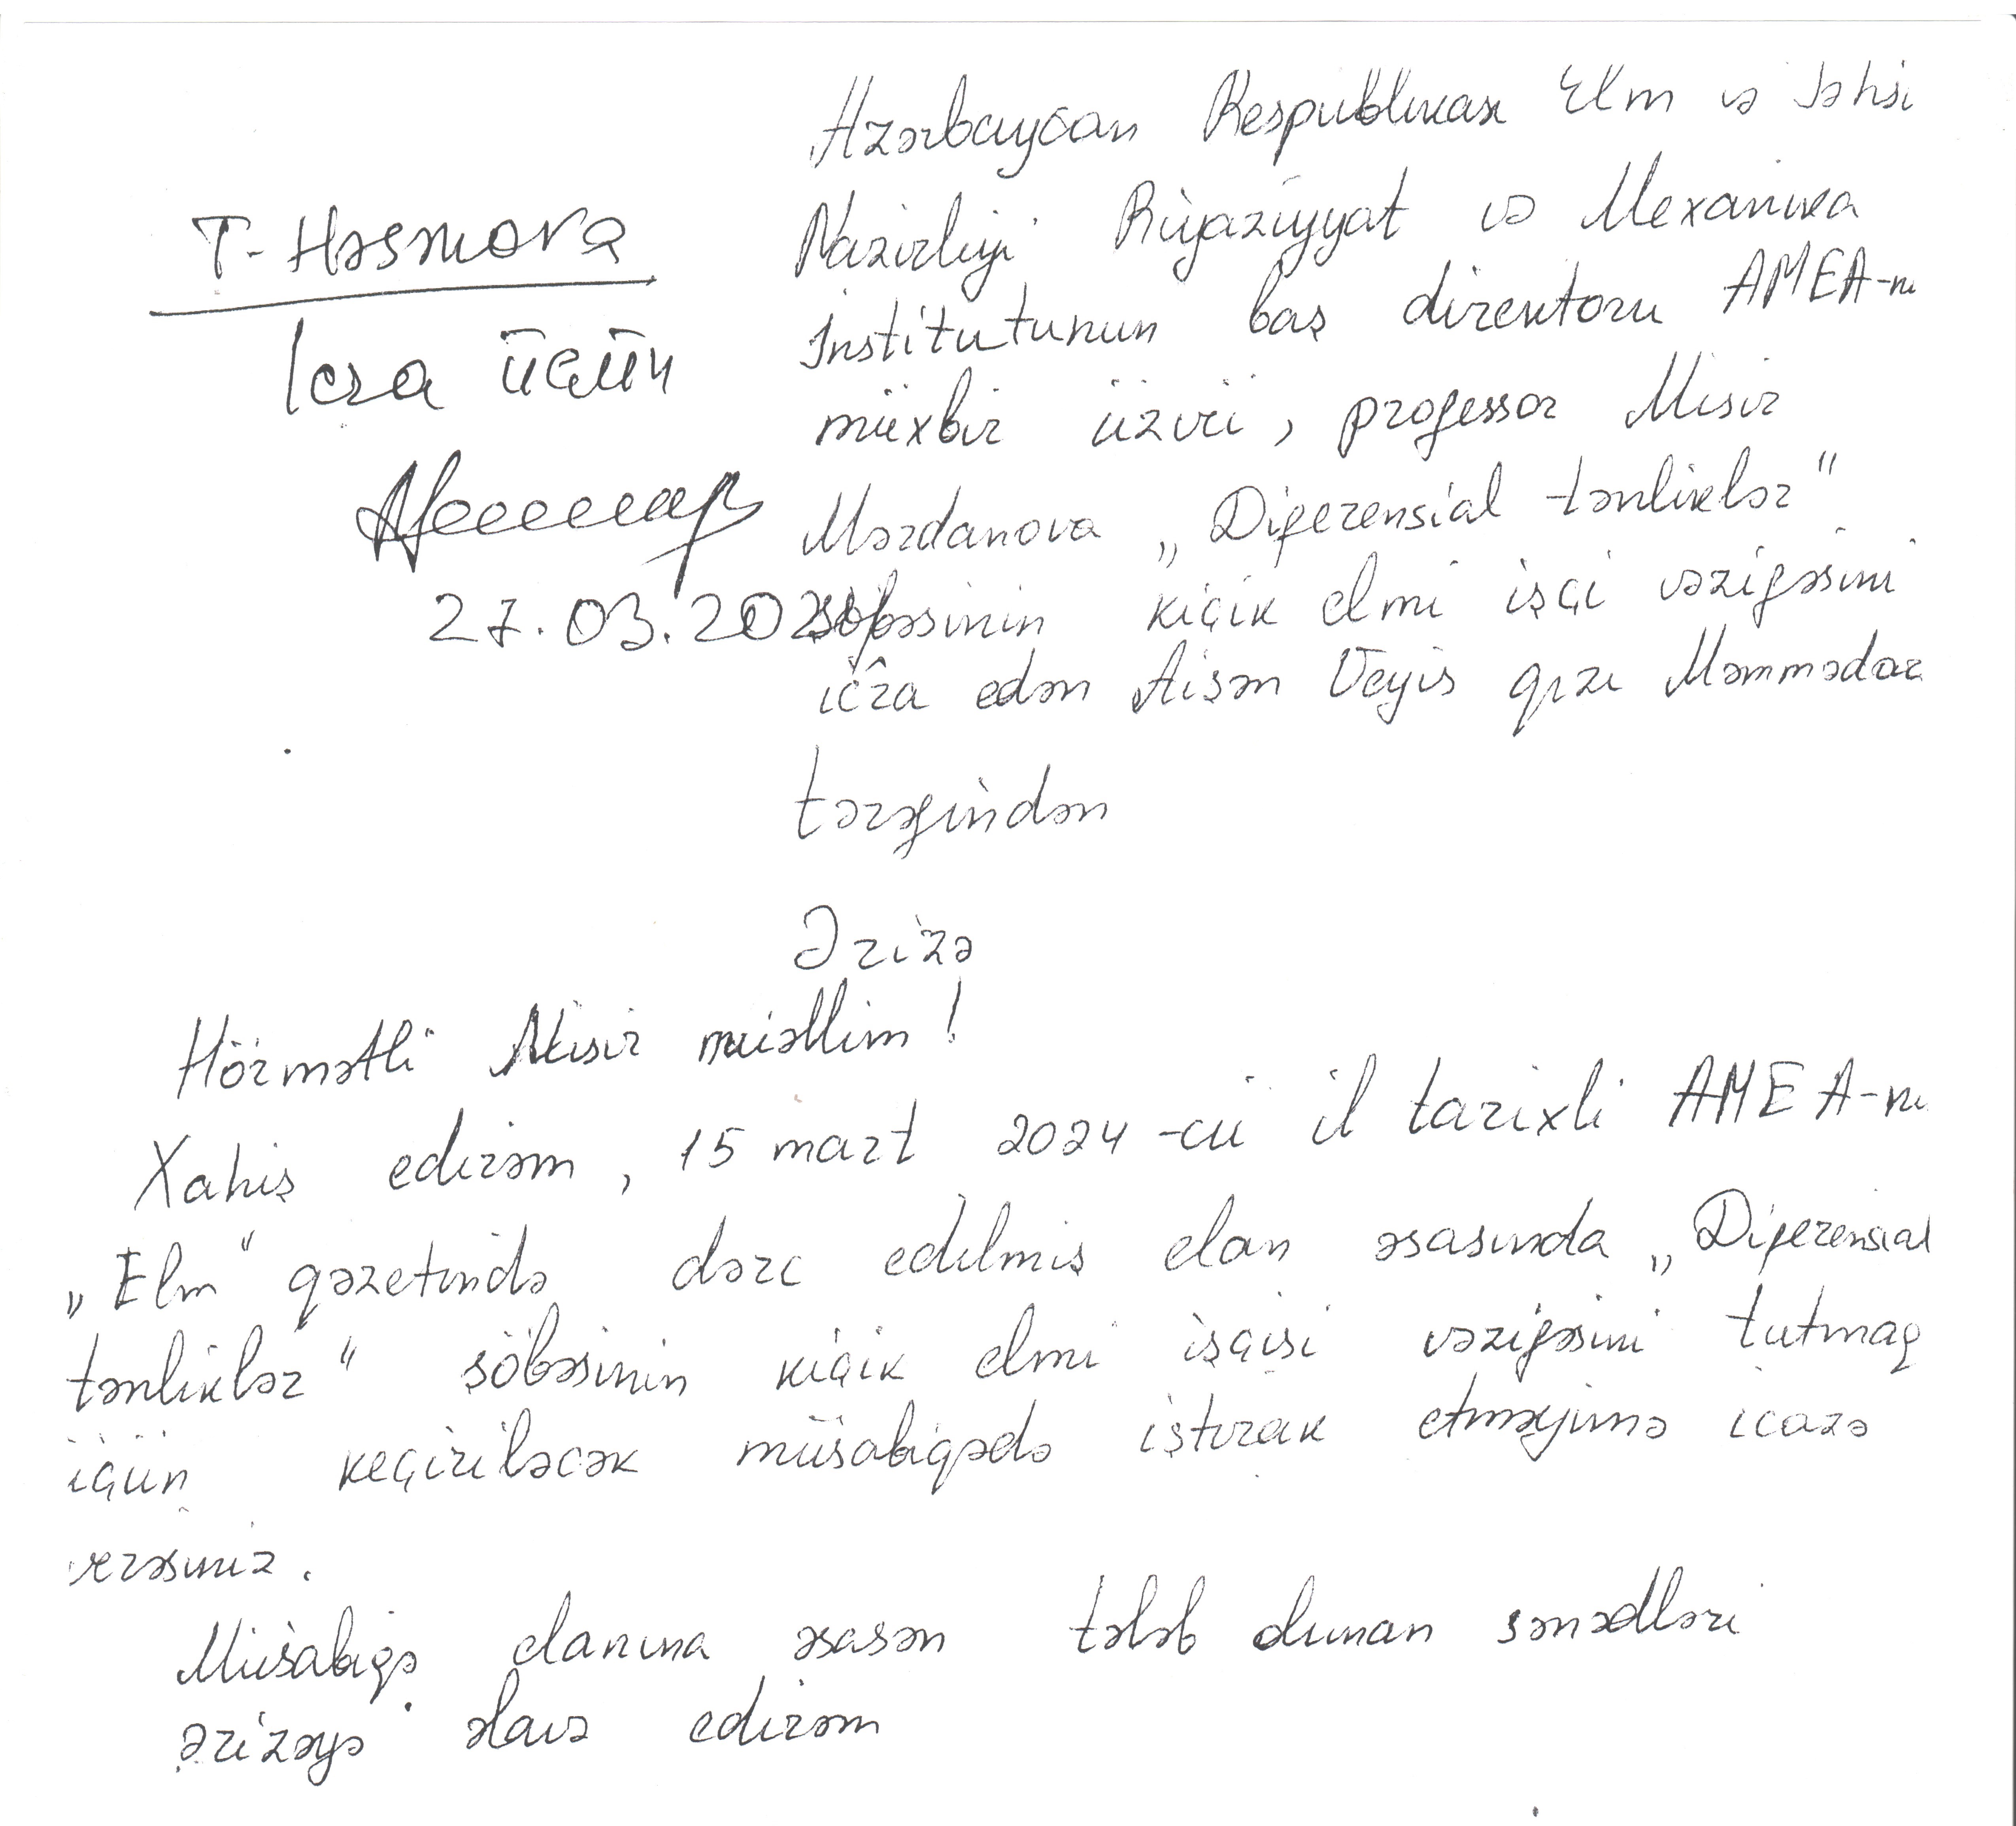 Azərbaycan Respublikası Elm və Təhsi
Nazirliyi Riyaziyyat və Mexanika
İnstitutunun baş direktoru AMEA-nı
müxbir üzvü, professor Misir
Mərdanova „Diferensial tənliklər"
şöbəsinin kiçik elmi işçi vəzifəsini
icra edən Aişən Veyis qızı Məmmədov
tərəfindən
T. Həsənova
İcra üçün
27.03.2024
Ərizə
Hörmətli Misir müəllim!
Xahiş edirəm, 15 mart 2024-cü il tarixli AMEA-nı
„Elm" qəzetində dərc edilmiş elan əsasında „Diferensial
tənliklər" şöbəsinin kiçik elmi işçisi vəzifəsini tutmaq
üçün keçiriləcək müsabiqədə iştirak etməyimə icazə
verəsiniz.
Müsabiqə elanına əsasən tələb olunan sənədləri
ərizəyə əlavə edirəm